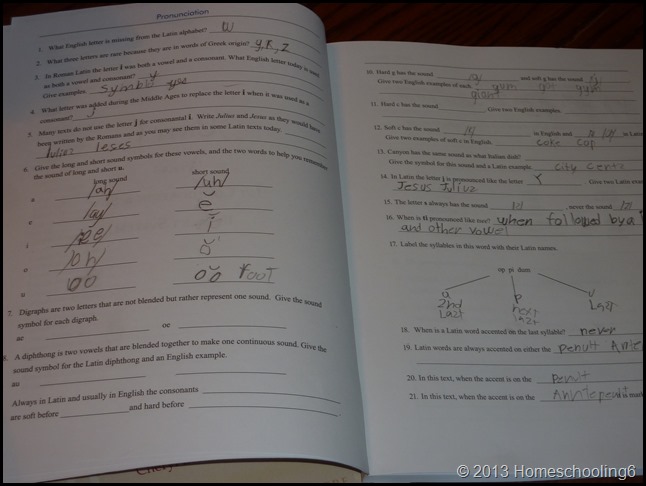 Pronunciation
1. What English letter is missing from the Latin alphabet? W
2. What three letters are rare because they are in words of Greek origin? y, K, Z
3. In Roman Latin the letter i was both a vowel and a consonant. What English letter today is used
as both a vowel and consonant? y
Give examples. symbol yes
4. What letter was added during the Middle Ages to replace the letter i when it was used as a
consonant? J
5. Many texts do not use the letter j for consonantal i. Write Julius and Jesus as they would have
been written by the Romans and as you may see them in some Latin texts today.
Iulius Iesus
6. Give the long and short sound symbols for these vowels, and the two words to help you remember
the sound of long and short u.
long sound short sound
a /ah/ /uh/
e /ay/ ĕ
i /ee/ ĭ
o /oh/ ŏ
u oo oo
7. Digraphs are two letters that are not blended but rather represent one sound. Give the sound
symbol for each digraph.
ae oe
8. A diphthong is two vowels that are blended together to make one continuous sound. Give the
sound symbol for the Latin diphthong and an English example.
au
Always in Latin and usually in English the consonants
are soft before and hard before
10. Hard g has the sound /g/ and soft g has the sound /j/
Give two English examples of each.
giant
11. Hard c has the sound Give two English examples.
12. Soft c has the sound in English and in Latin
Give two examples of soft c in English. coke cap
13. Canyon has the same sound as what Italian dish?
Give the symbol for this sound and a Latin example. city cents
14. In Latin the letter j is pronounced like the letter Y. Give two Latin
Jesus Julius
15. The letter s always has the sound /s/, never the sound /z/
16. When is ti pronounced like tsee? when followed by a
and other vowel
17. Label the syllables in this word with their Latin names.
op pi dum
a p u
2nd next Last
Last Last
18. When is a Latin word accented on the last syllable? never
19. Latin words are always accented on either the penult Ante
20. In this text, when the accent is on the penult
21. In this text, when the accent is on the Antepenult is mark
© 2013 Homeschooling6